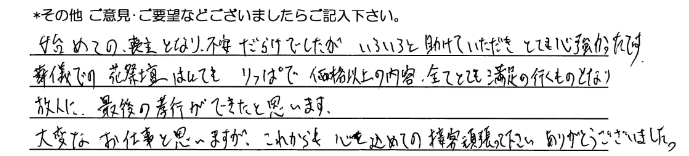 *その他 ご意見・ご要望などございましたらご記入下さい。
始めての、喪主となり、不安だらけでしたが いろいろと助けていただき とても心強かったです。
葬儀での 花祭壇 はとても りっぱで 価格以上の内容、全てとても満足の行くものとなり
故人に、最後の孝行ができたと思います。
大変な お仕事と思いますが、これからも 心を込めての 接客頑張って下さい ありがとうございました。